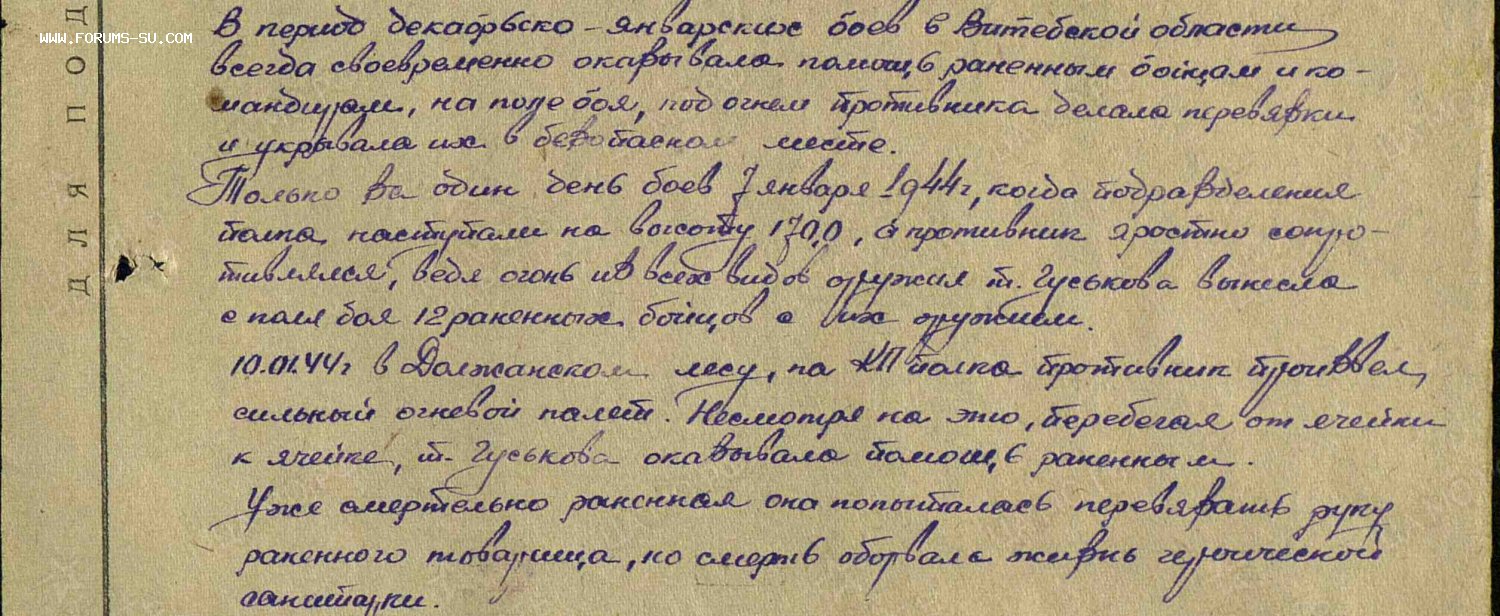 WWW.FORUMS-SU.COM
ДЛЯ ПОД
В период декабрьско-январских боев в Витебской области
всегда своевременно оказывала помощь раненным бойцам и ко-
мандирам, на поле боя, под огнем противника делала перевязки
и укрывала их в безопасном месте.
Только за один день боев 7 января 1944г, когда подразделения
полка наступали на высоту 170,0, а противник яростно сопро-
тивлялся, ведя огонь из всех видов оружия т. Гуськова вынесла
с поля боя 12 раненных бойцов с их оружием.
10.01.44г в Должанском лесу, на КП полка противник произвел
сильный огневой налет. Несмотря на это, перебегая от ячейки
к ячейке, т. Гуськова оказывала помощь раненным.
Уже смертельно раненная она попыталась перевязать руку
раненного товарища, но смерть оборвала жизнь героической
санитарки.